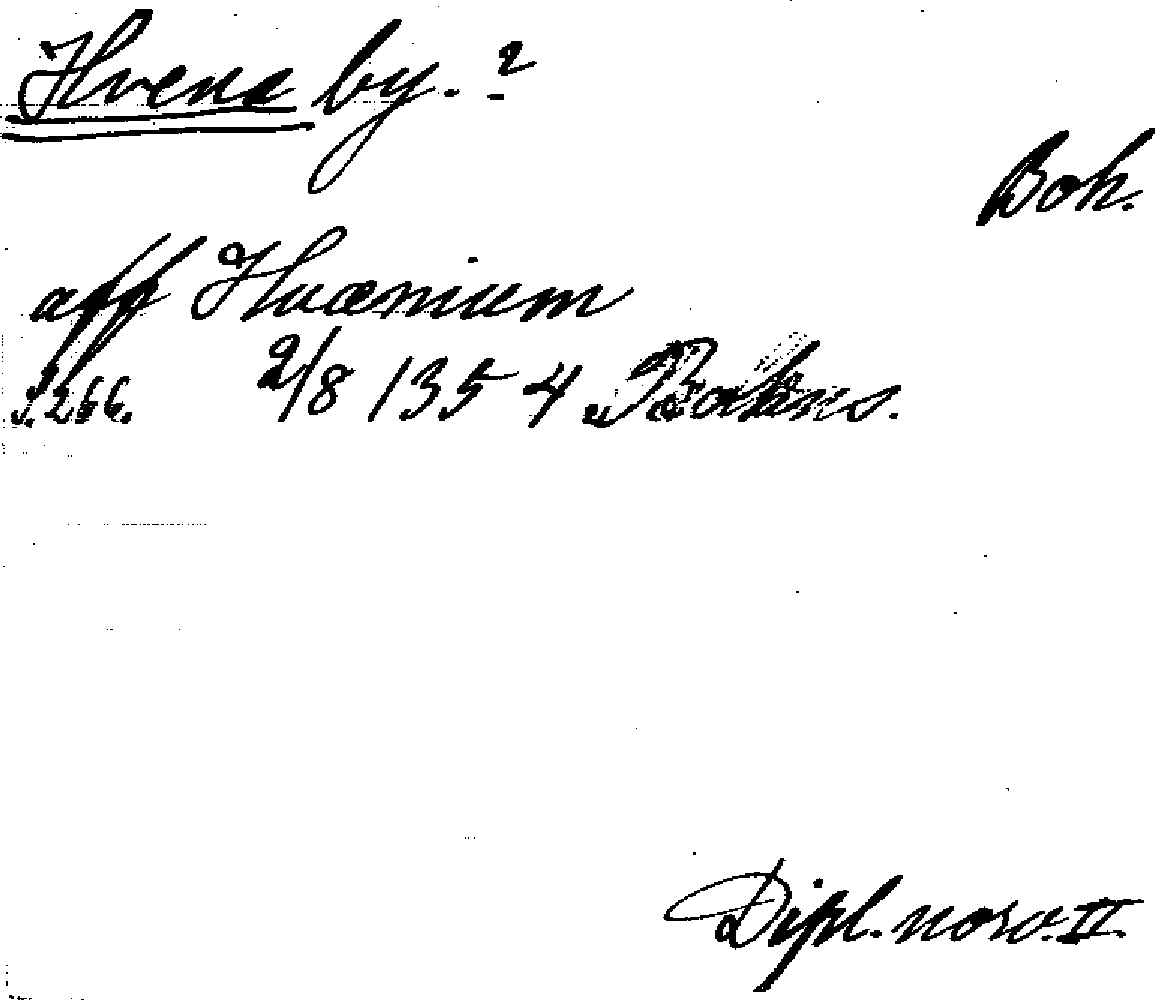 Hvena by. ?
Boh.
aff Hvænium
s. 266. 2/8 1354 Bohus.
Dipl. norv. II.